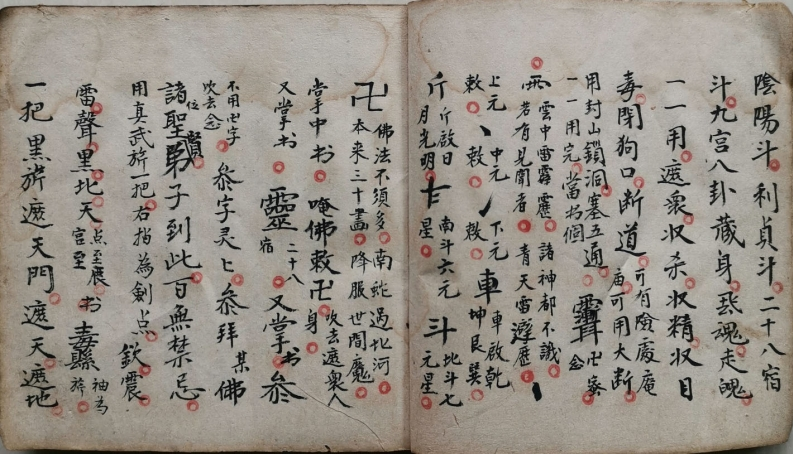 陰陽斗利貞斗二十八宿
斗九宮八卦藏身 魂走魄
一一用遮衆收杀收精收目
毒閉狗口断道可有險處庵庙可用大断
用封山鎖洞塞五通 卍 念
一一用完當 個
雲中雷霹靂諸神都不識
若有見聞者青天雷 
上元 中元 下元 車 車啟乾
敕 敕 敕 坤艮巽
斤 斤啟日 南斗六元 斗 北斗七
月光明 星 元星
卍 佛法不須多南 过北河
本来三十畫降服世間魔
掌中书唵佛敕卍身吹去遮衆人
又掌书靈宿二十八又掌书叅
不用卍字
吹去念 叅字灵上叅拜某佛
諸位聖賢弟子到此百無禁忌
用真武旂一把右指為劍点欽震
雷聲黑北天 点至 书 縣 袖為旂
一把黑旂遮天門遮天遮地